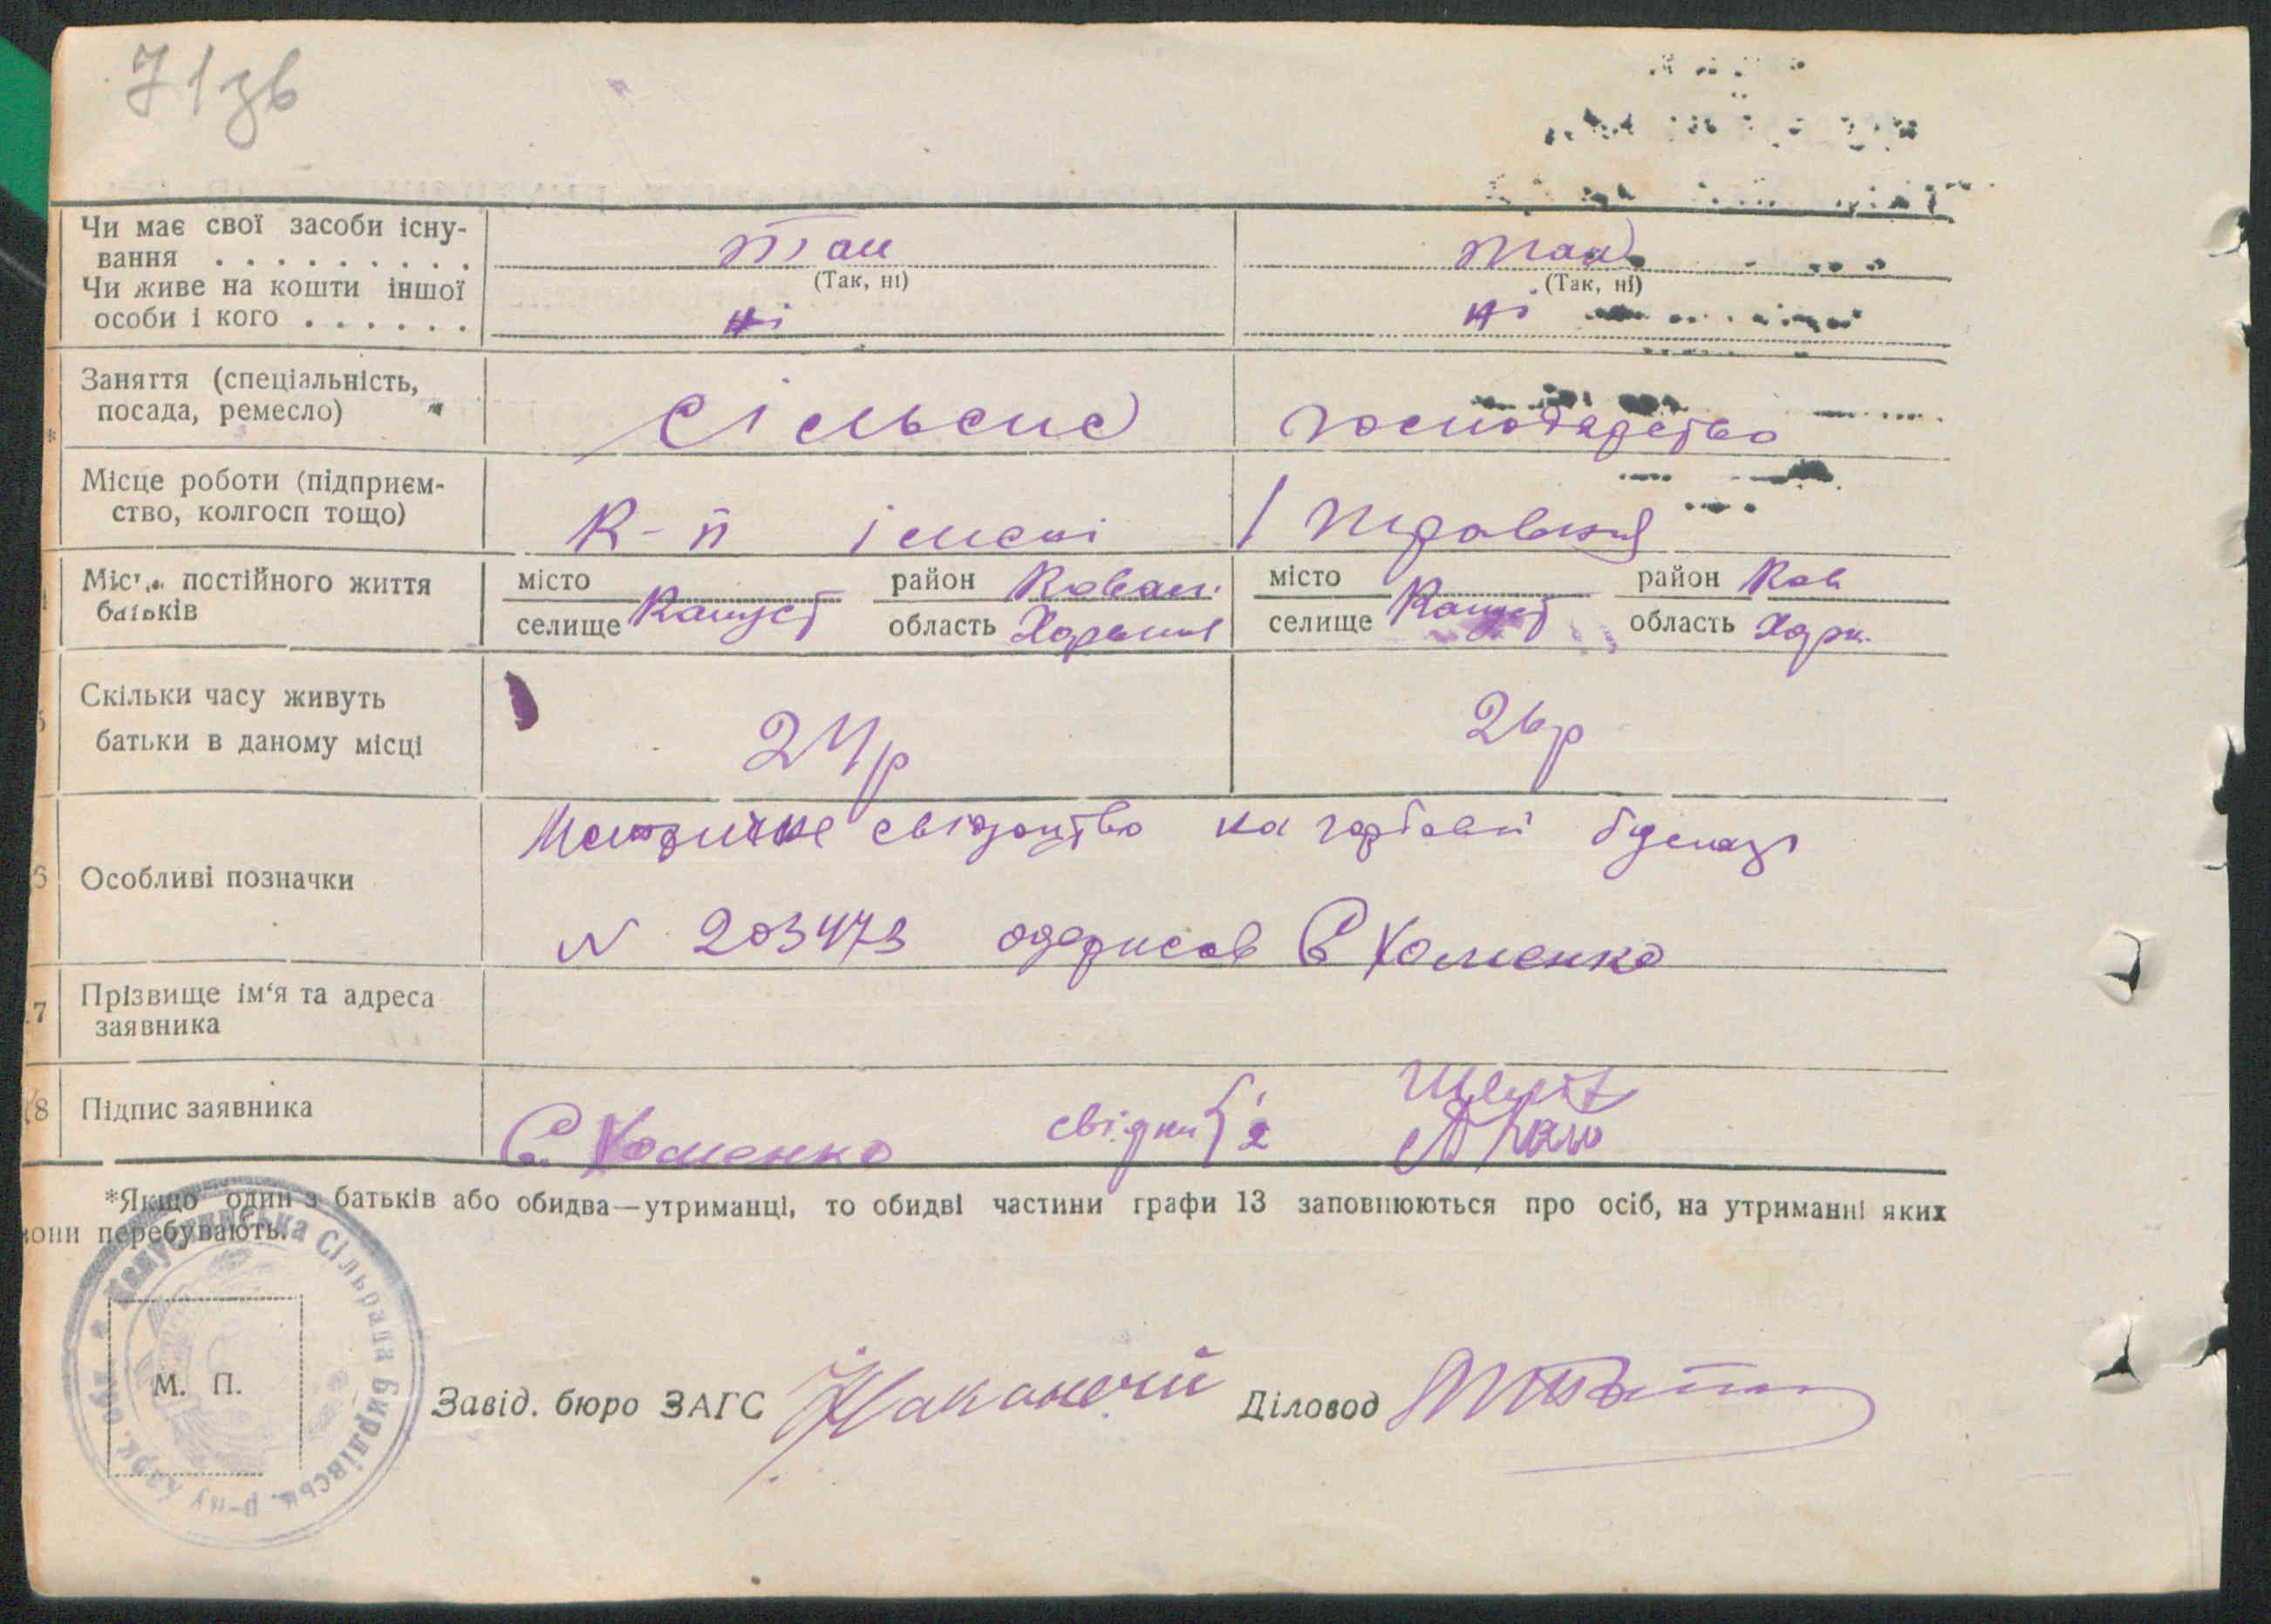 71зв
Чи має свої засоби існу-
вання . . . . . . . . .
так
так
(Так, ні)
(Так, ні)
Чи живе на кошти іншої
особи і кого . . . . . .
ні
ні
Заняття (спеціальність,
посада, ремесло)
Сільське господарство
Місце роботи (підприєм-
ство, колгосп тощо)
К-п імені 1 травня
Місце постійного життя
батьків
місто район
селище Капуст область Харьков
місто район Ков
селище Капуст область Харк.
Скільки часу живуть
батьки в даному місці
24р
26р
6 Особливі позначки
Метричне свідоцтво на гербовій бумазі
N 203473 одержав Є Хоменко
17 Прізвище ім'я та адреса
заявника
18 Підпис заявника
Є. Хоменко свідки 1
2
*Якщо один з батьків або обидва—утриманці, то обидві частини графи 13 заповнюються про осіб, на утриманні яких
вони перебувають.
Капустянська Сільрада Бирлівськ. р-ну Харк. обл.
М. П.
Завід. бюро ЗАГС
Діловод